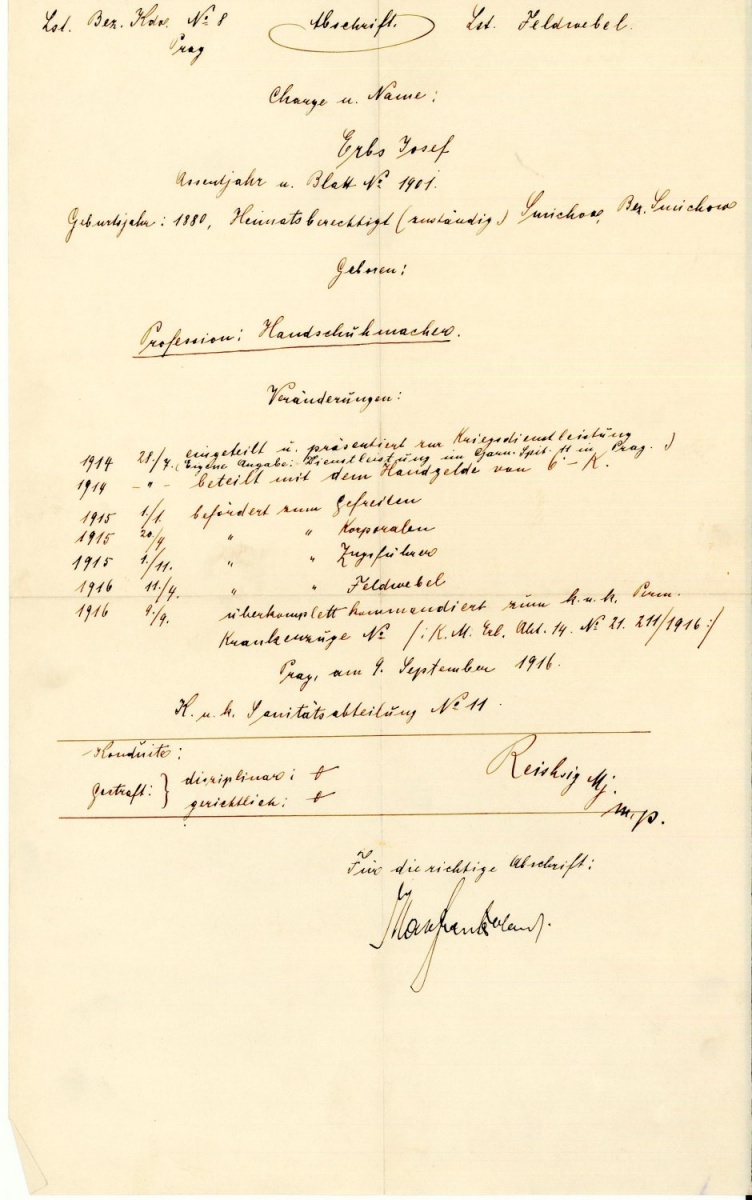 Lst. Bez. Kdo. № 8 Abschrift. Lst. Feldwebel.
Prag
Charge u. Name:
Erbs Josef
Assentjahr u. Blatt № 1901.
Geburtsjahr: 1880, Heimatsberechtigt (zuständig) Smichow, Bez. Smichow
Geboren:
Profession: Handschuhmacher.
Veränderungen:
1914 28./7. eingeteilt u. präsentiert zur Kriegsdienstleistung
(Eigene Angabe: Dienstleistung im Garn. Spit. 11 in Prag.)
1914 -"- beteilt mit dem Handgelde von 6 - K.
1915 1./1. befördert zum Gefreiten
1915 20./4 " " Korporalen
1915 1./11. " " Zugsführer
1916 11./4. " " Feldwebel
1916 9./9. überkomplett kommandiert zum k.u.k. Perm.
Krankenzuge № /:K.M. Erl. Abt. 14. № 21. 211/1916:/
Prag, am 9. September 1916.
K. u. k. Sanitätsabteilung № 11.
Konduite:
Gestraft: } disziplinar:
gerichtlich:
Mj.
m.p.
Für die richtige Abschrift: